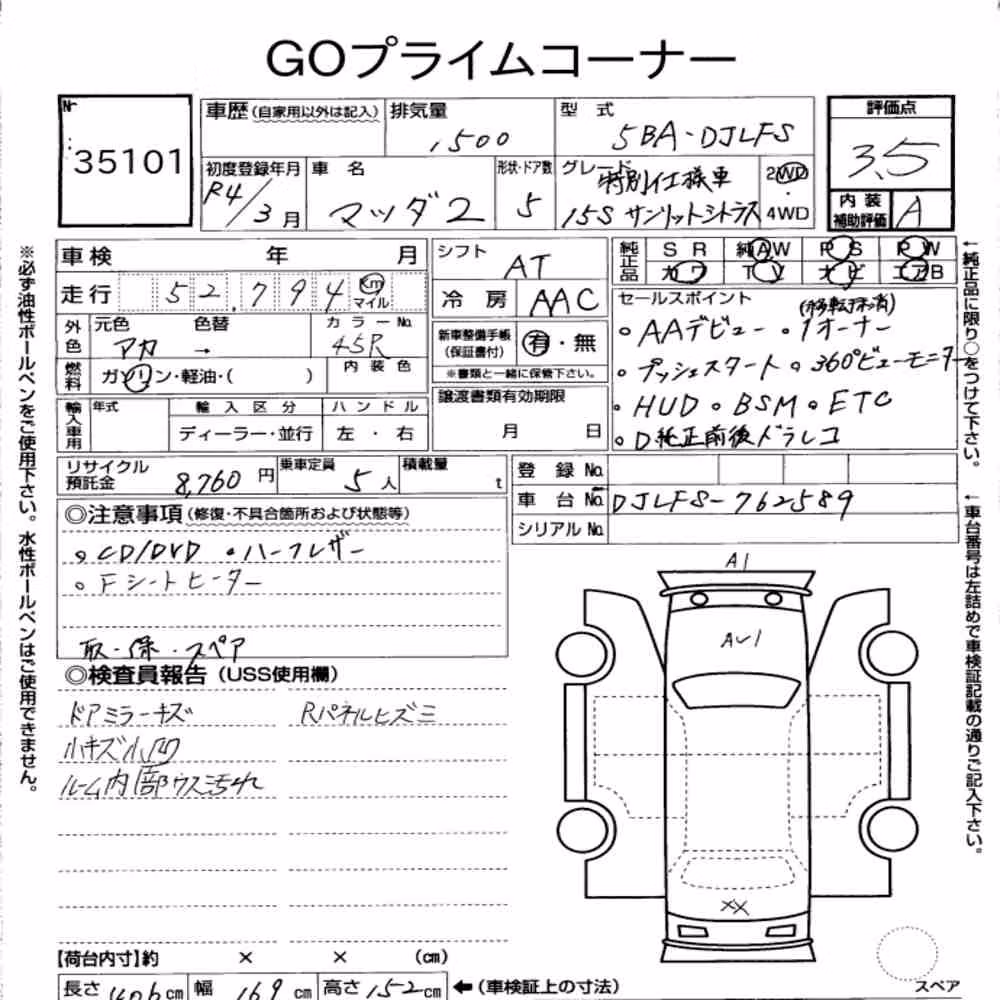 GOプライムコーナー
No.
35101
車歴(自家用以外は記入)
排気量
1500
型 式
5BA-DJLFS
評価点
3.5
初度登録年月
R4/3月
車 名
マツダ2
形状・ドア数
5
グレード
特別仕様車
15S サンリットシトラス
2WD
・
4WD
内装
補助評価
A
車検 年 月
走行 52,794 Km
マイル
シフト
AT
冷 房
AAC
純正品
SR 純AW PS PW
カワ TV ナビ エアB
外色
元色 色替
アカ →
カラーNo.
45R
燃料
ガソリン・軽油・( )
内装色
新車整備手帳
(保証書付)
有・無
※書類と一緒に保管下さい。
セールスポイント
(移転未済)
○AAデビュー ○1オーナー
○プッシュスタート ○360°ビューモニター
○HUD ○BSM ○ETC
○D純正前後ドラレコ
輸入車用
年式
輸入区分
ハンドル
ディーラー・並行
左 ・ 右
譲渡書類有効期限
月 日
リサイクル
預託金
8,760円
乗車定員
5人
積載量
t
登 録 No.
車 台 No. DJLFS-762589
シリアル No.
◎注意事項(修復・不具合箇所および状態等)
○CD/DVD ○ハーフレザー
○Fシートヒーター
取・保・スペア
◎検査員報告(USS使用欄)
ドアミラーキズ
Rパネルヒズミ
小キズ小凹
ルーム内部ウス汚れ
A1
AU1
XX
スペア
【荷台内寸】約 × × (cm)
長さ 406cm 幅 169cm 高さ 152cm
←(車検証上の寸法)
※必ず油性ボールペンをご使用下さい。水性ボールペンはご使用できません。
←純正品に限り○をつけて下さい。
←車台番号は左詰めで車検証記載の通りご記入下さい。